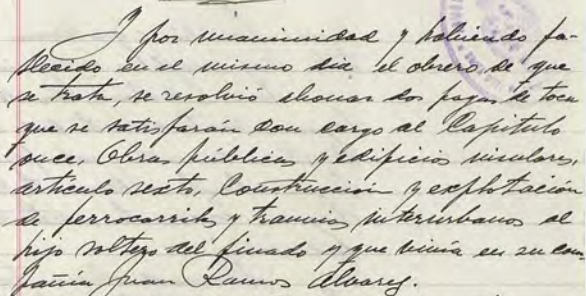 Y por unanimidad y habiendo fa-
llecido en el mismo dia el obrero de que
se trata, se resolvió abonar dos pagas de toca
que se satisfarán con cargo al Capitulo
once, Obras públicas y edificios insulares,
articulo sexto, Construcción y explotación
de ferrocarriles y tranvias interurbanos al
hijo soltero del finado y que vivia en su com-
pañia Juan Ramos Alvarez.